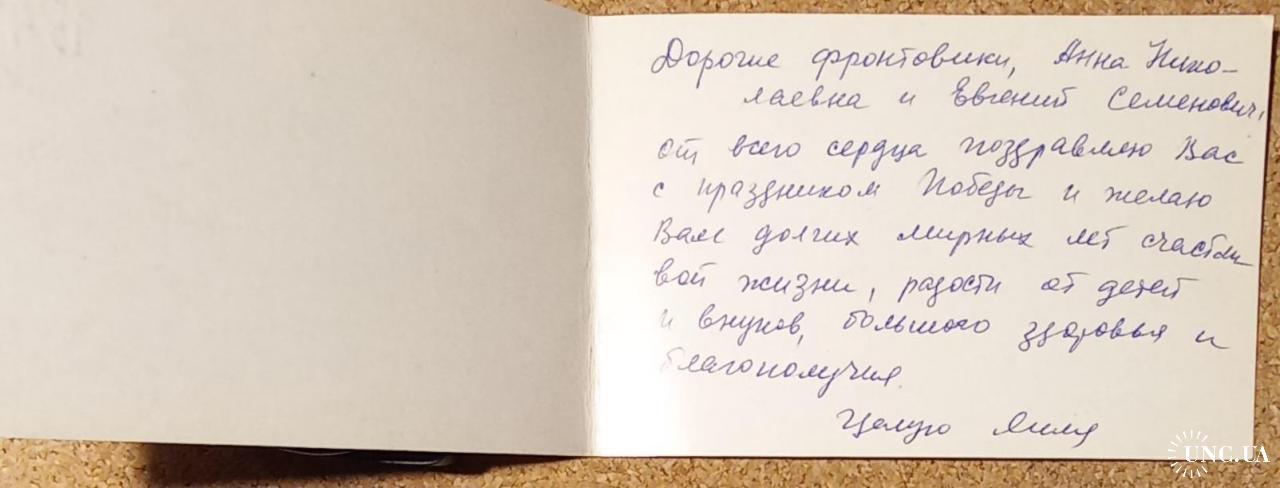 Дорогие фронтовики, Анна Нико-
лаевна и Евгений Семенович,
от всего сердца поздравляю Вас
с праздником Победы и желаю
Вам долгих мирных лет счастли
вой жизни, радости от детей
и внуков, большого здоровья и
благополучия.
Целую
UNC.UA